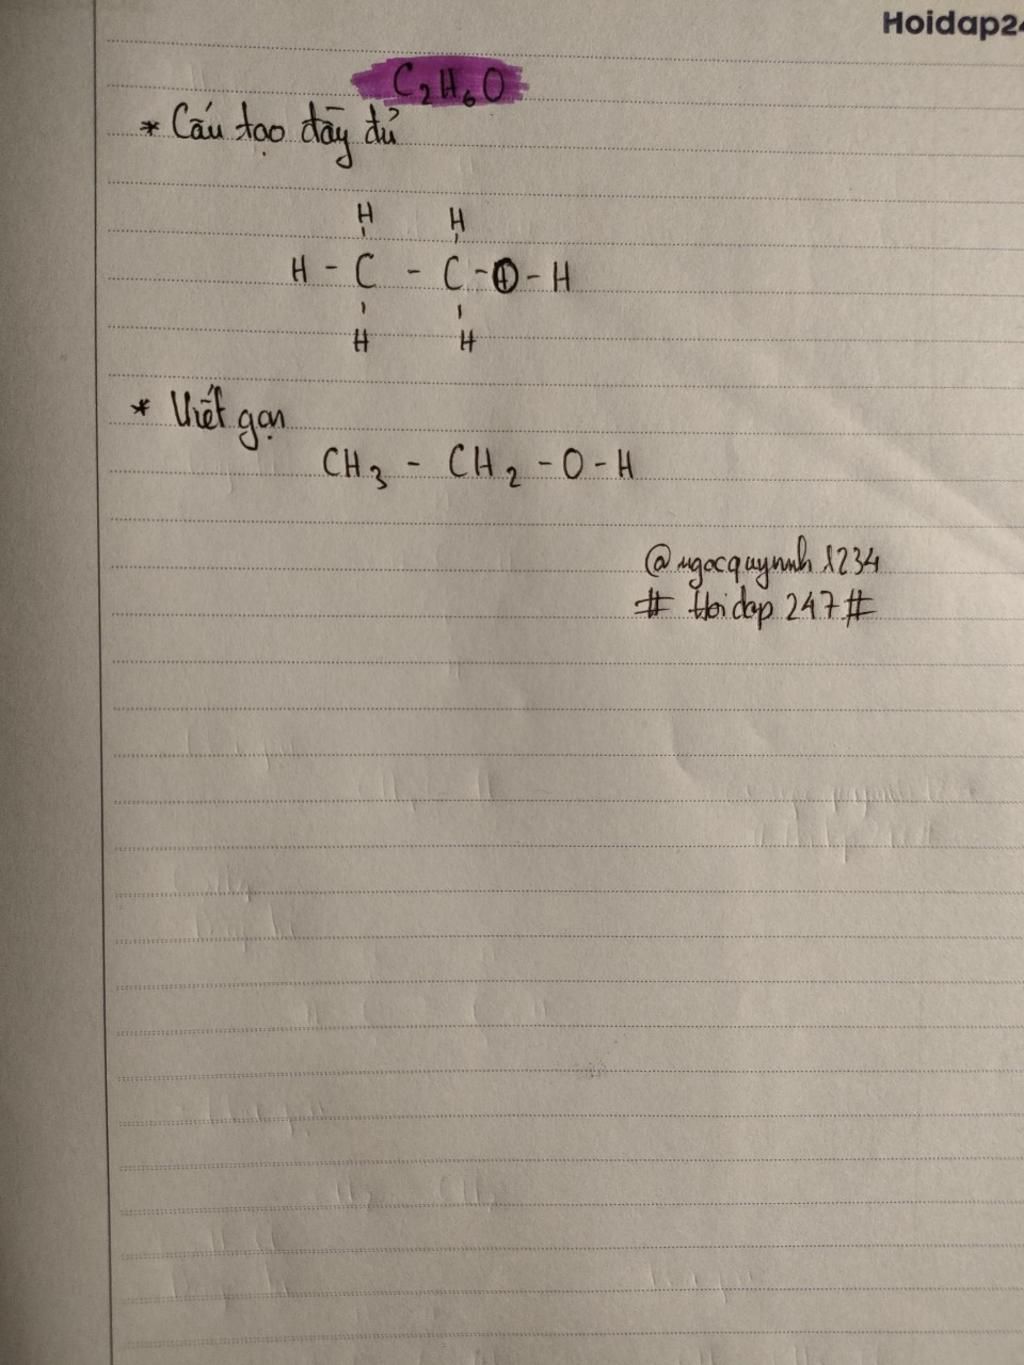 Hoidap24
C₂H₆O
* Cấu tạo đầy đủ
H H
H - C - C - O - H
H H
* Viết gọn
CH₃ - CH₂ - O - H
@ngocquynnh1234
# Hoidap 247#